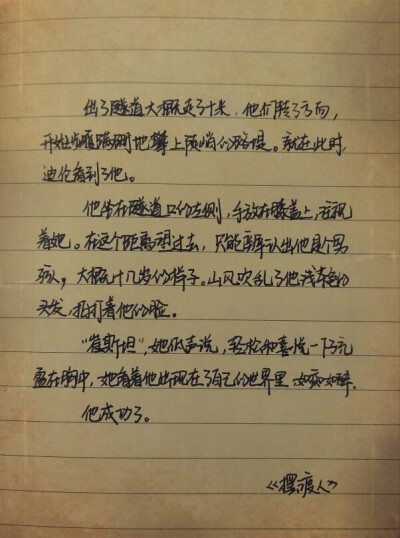 出了隧道大概走了十米，他们转了方向，
开始步履蹒跚地攀上陡峭的路堤。就在此时，
迪伦看到了他。
他坐在隧道口的左侧，手放在膝盖上，注视
着她。在这个距离望过去，只能辨认出他是个男
孩，大概十几岁的样子。山风吹乱了他浅棕色的
头发，拍打着他的脸。
“崔斯坦”，她低声说，轻松和喜悦一下子充
盈在胸中，她看着他出现在了自己的世界里，如痴如醉。
他成功了。
《摆渡人》